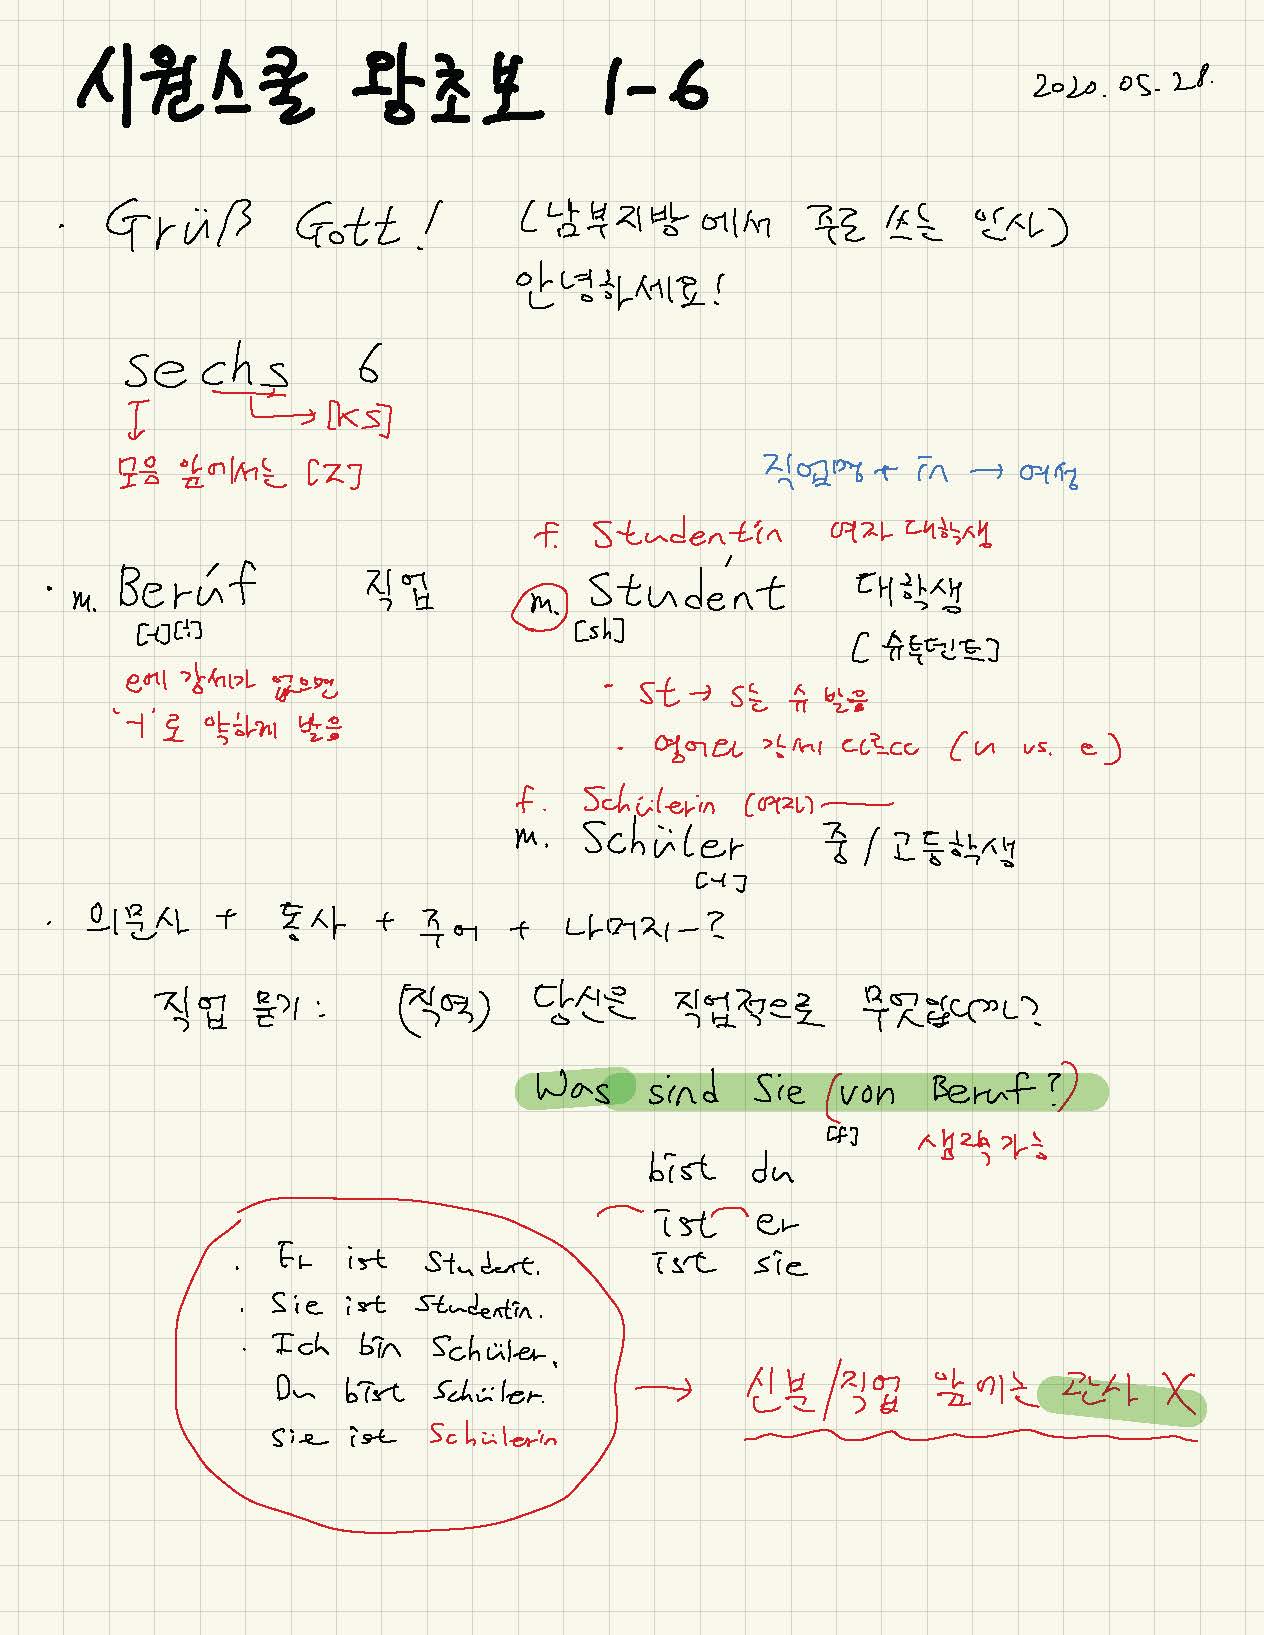 시원스쿨 왕초보 1-6
2020.05.28.
· Grüß Gott! (남부지방에서 주로 쓰는 인사)
안녕하세요!
sechs 6
→ [KS]
모음 앞에서는 [Z]
직업명 + in → 여성
f. Studentin 여자 대학생
· m. Beruf 직업
m. Student 대학생
[sh]
[슈투덴트]
e에 강세가 없으면
'ㅓ'로 약하게 발음
· st → s는 슈 발음
· 영어와 강세 다르다 (u vs. e)
f. Schülerin (여자)
m. Schüler 중/고등학생
[ㅓ]
· 의문사 + 동사 + 주어 + 나머지-?
직업 묻기: (직역) 당신은 직업적으로 무엇입니까?
Was sind Sie (von Beruf?)
[f] 생략가능
bist du
ist er
ist sie
· Er ist Student.
· Sie ist Studentin.
· Ich bin Schüler.
Du bist Schüler.
Sie ist Schülerin
→ 신분/직업 앞에는 관사 X